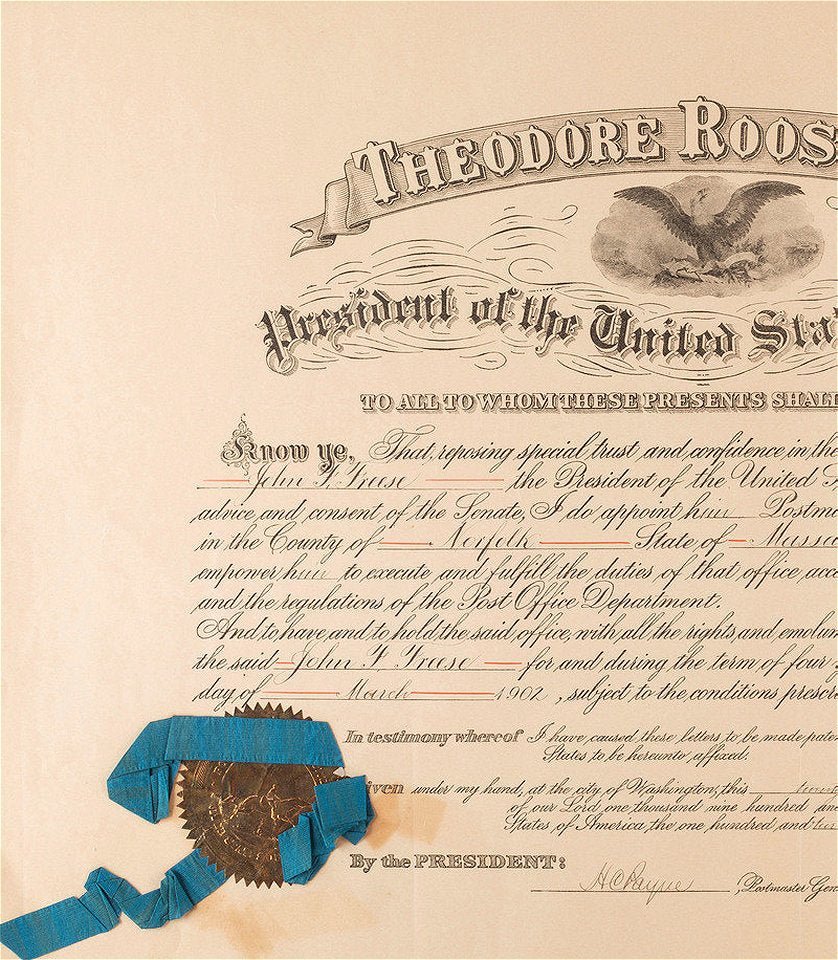 THEODORE ROOS
President of the United Sta
TO ALL TO WHOM THESE PRESENTS SHALL
Know ye, That, reposing special trust and confidence in the
John F. Freese the President of the United
advice, and consent of the Senate, I do appoint him Postm
in the County of Norfolk State of Massa
empower him to execute and fulfill the duties of that office acc
and the regulations of the Post Office Department.
And to have and to hold the said office, with all the rights and emolum
the said John F Freese for and during the term of four
day of March 1902, subject to the conditions prescr
In testimony whereof I have caused these letters to be made pate
States to be hereunto affixed.
iven under my hand, at the city of Washington, this
of our Lord one thousand nine hundred an
States of America, the one hundred and
By the PRESIDENT:
H C Payne, Postmaster Gen